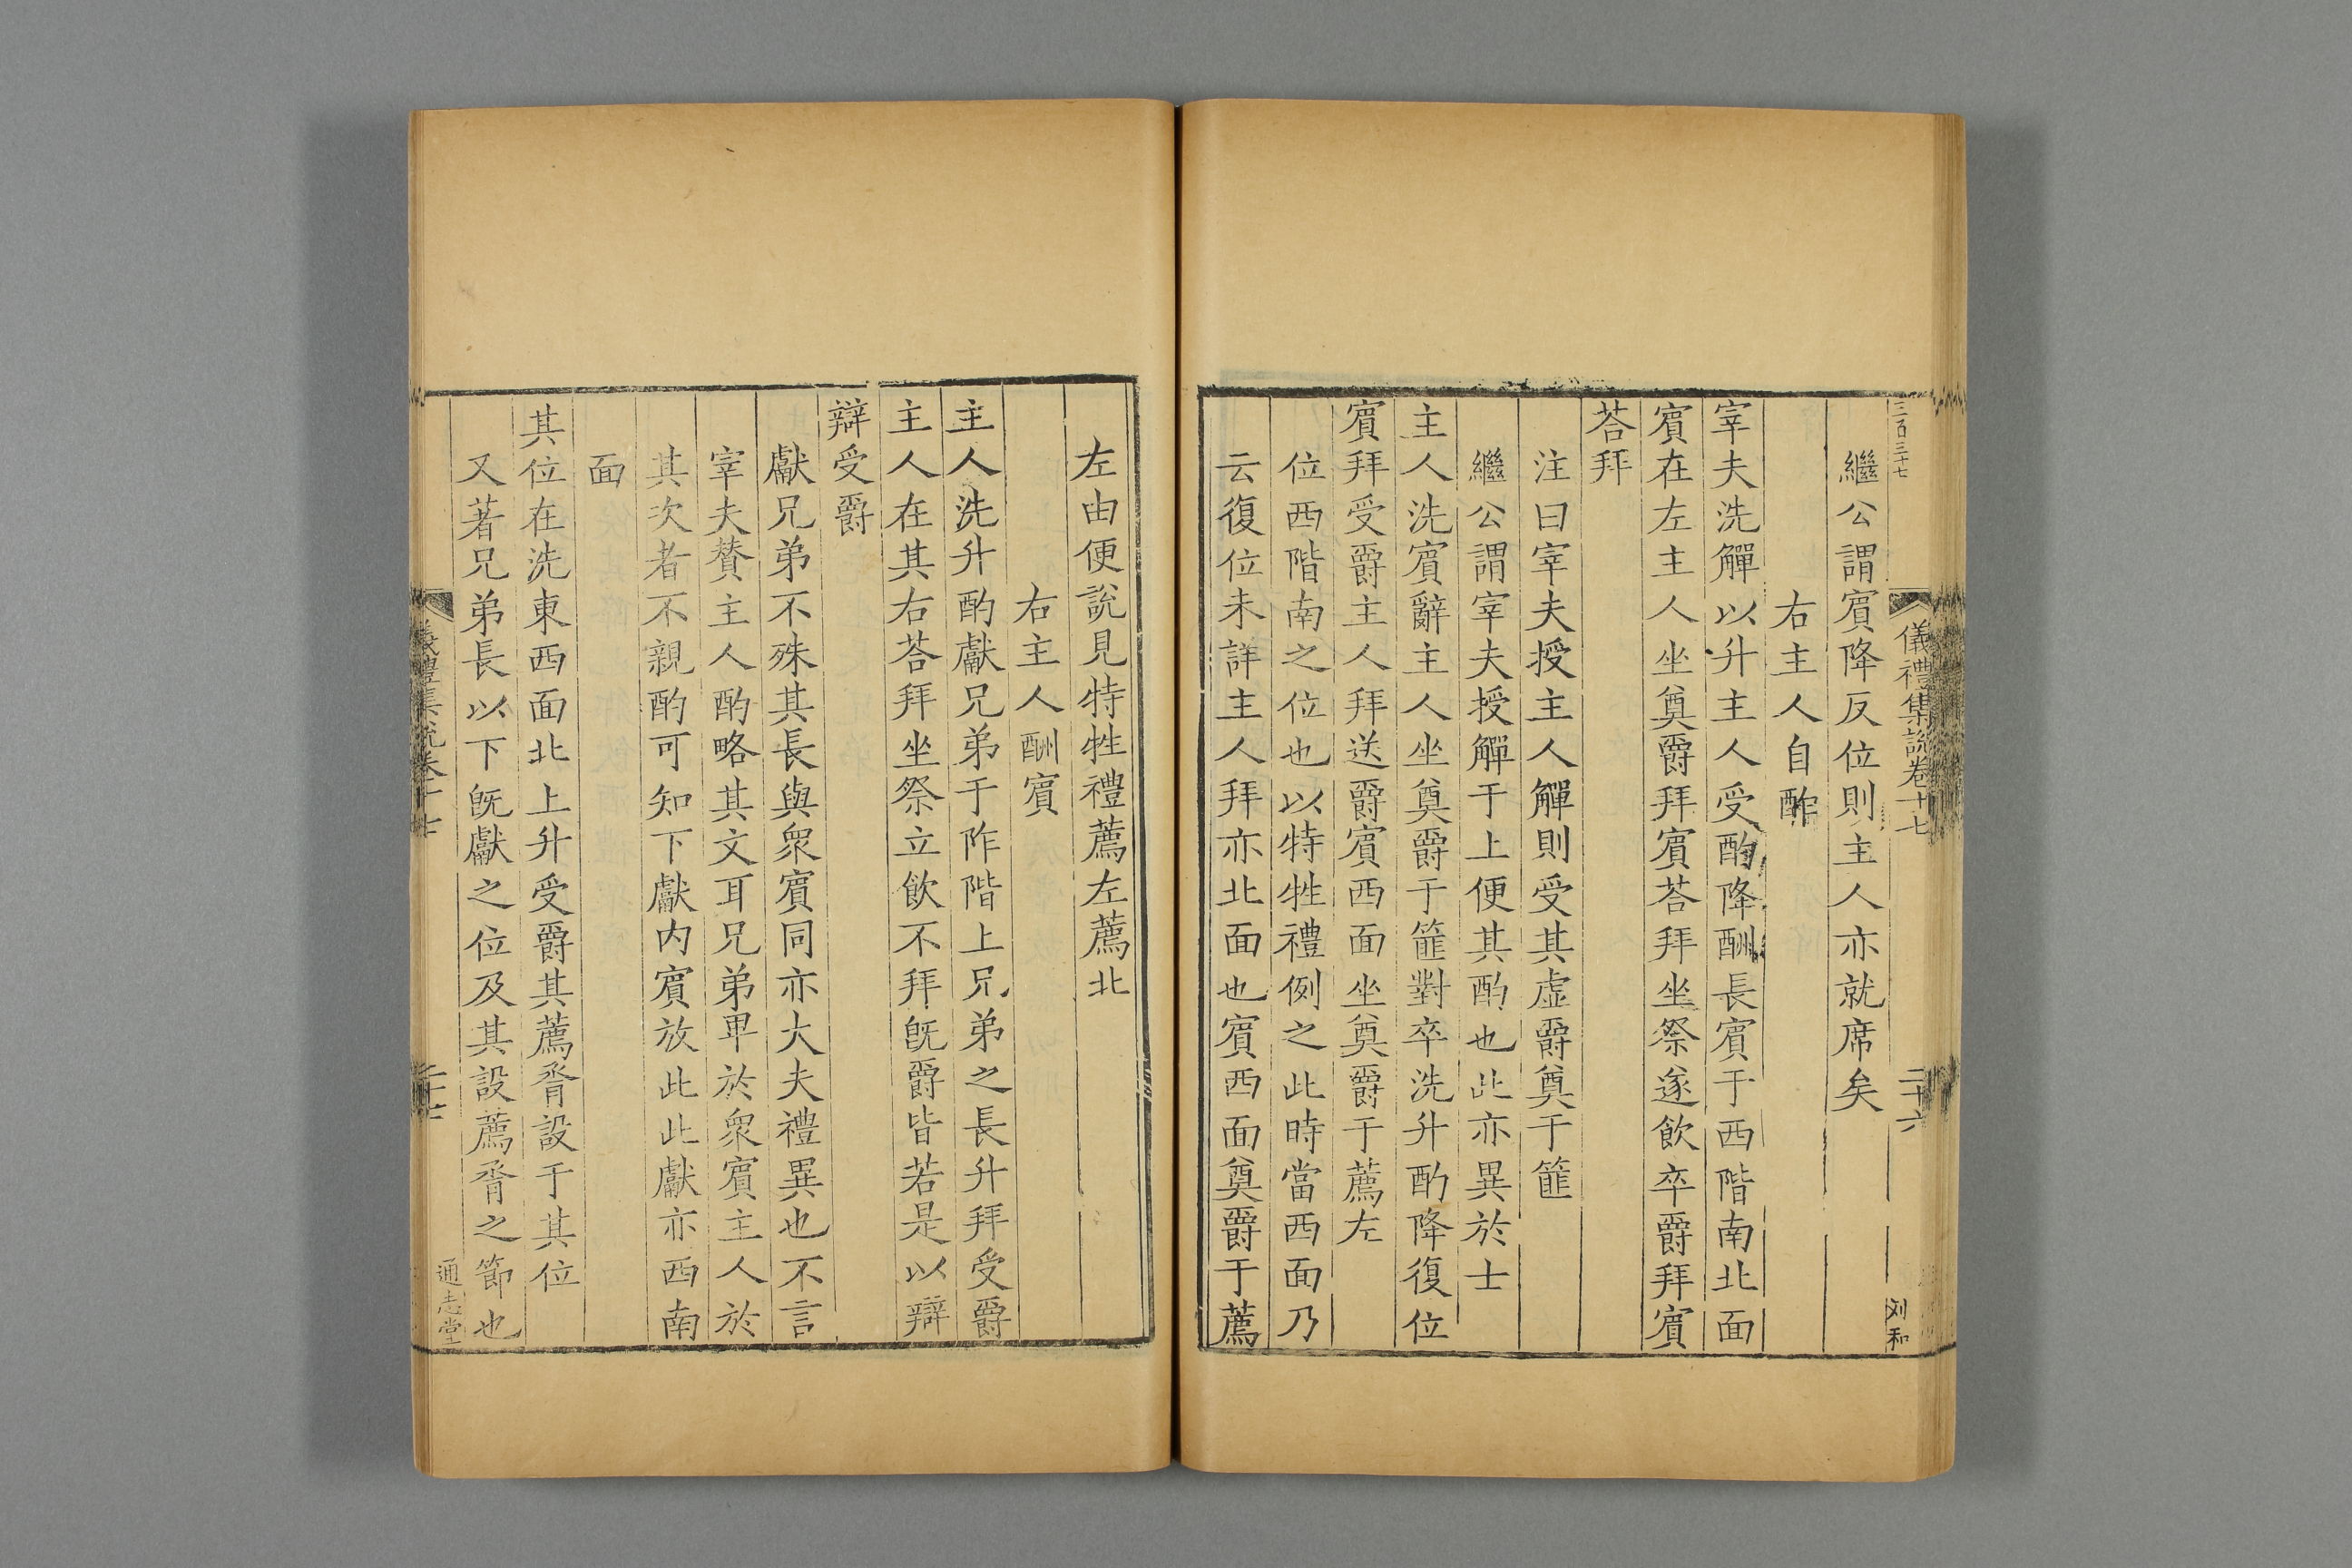 三百三十七
儀禮集說卷十七
二十六
刘和
繼公謂賔降反位則主人亦就席矣
右主人自酢
宰夫洗觶以升主人受酌降酬長賔于西階南北面
賔在左主人坐奠爵拜賔荅拜坐祭遂飲卒爵拜賔
荅拜
注曰宰夫授主人觶則受其虛爵奠于篚
繼公謂宰夫授觶于上便其酌也此亦異於士
主人洗賔辭主人坐奠爵于篚對卒洗升酌降復位
賔拜受爵主人拜送爵賔西面坐奠爵于薦左
位西階南之位也以特牲禮例之此時當西面乃
云復位未詳主人拜亦北面也賔西面奠爵于薦
左由便說見特牲禮薦左薦北
右主人酬賔
主人洗升酌獻兄弟于阼階上兄弟之長升拜受爵
主人在其右荅拜坐祭立飲不拜旣爵皆若是以辯
辯受爵
獻兄弟不殊其長與衆賔同亦大夫禮異也不言
宰夫贊主人酌略其文耳兄弟卑於衆賔主人於
其次者不親酌可知下獻内賔放此此獻亦西南
面
其位在洗東西面北上升受爵其薦脀設于其位
又著兄弟長以下旣獻之位及其設薦脀之節也
儀禮集說卷十七
二十七
通志堂